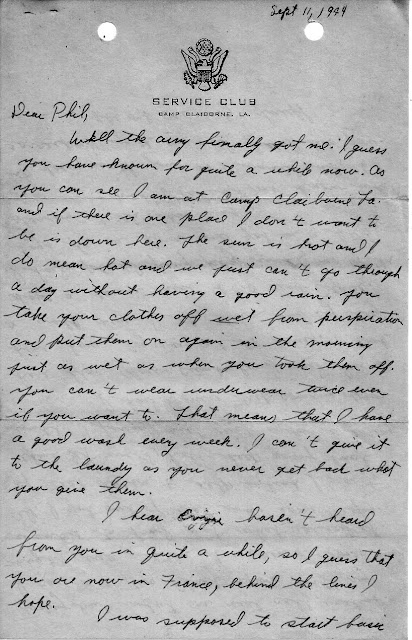 Sept 11, 1944
SERVICE CLUB
CAMP CLAIBORNE, LA.
Dear Phil,
Well the army finally got me. I guess
you have known for quite a while now. As
you can see I am at Camp Claiborne La.
and if there is one place I don't want to
be is down here. The sun is hot and I
do mean hot and we just can't go through
a day without having a good rain. You
take your clothes off wet from perspiration
and put them on again in the morning
just as wet as when you took them off.
You can't wear underwear twice even
if you want to. That means that I have
a good wash every week. I can't give it
to the laundry as you never get back what
you give them.
I hear haven't heard
from you in quite a while, so I guess that
you are now in France, behind the lines I
hope.
I was supposed to start basic